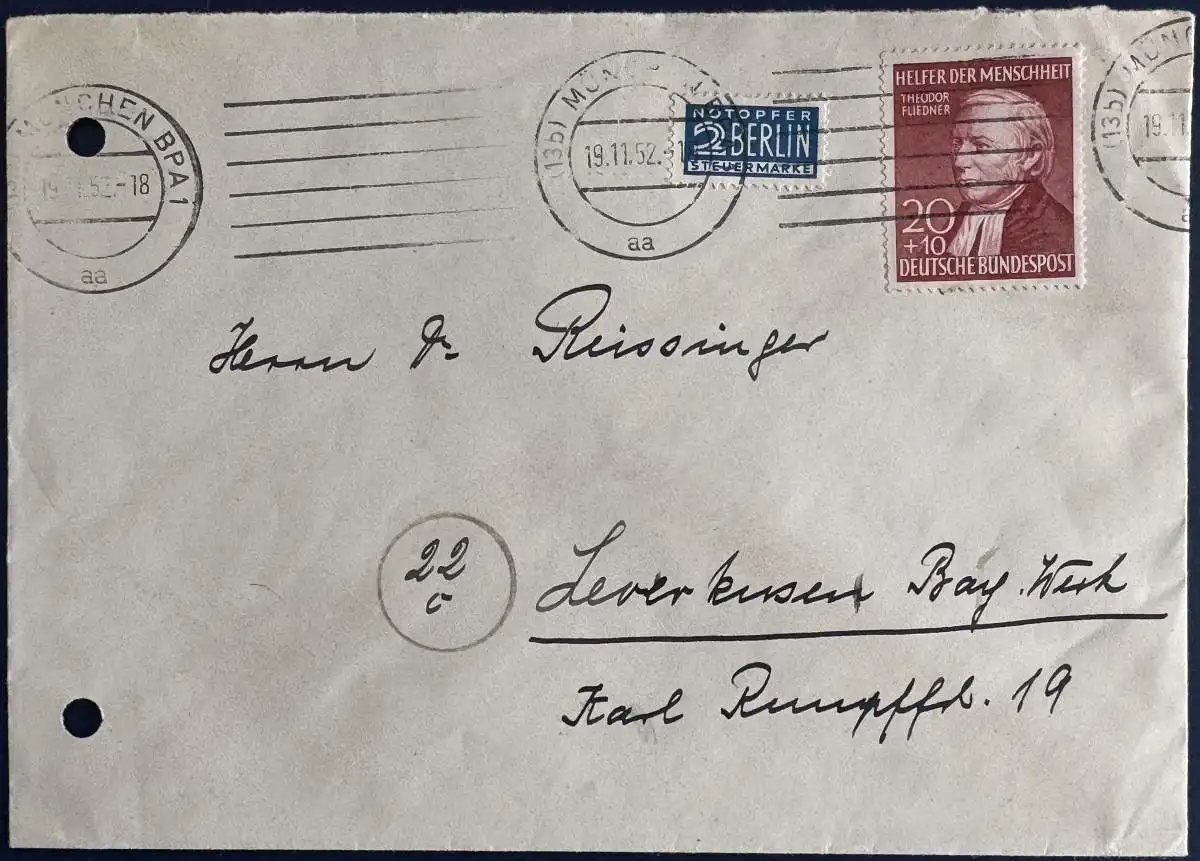 MÜNCHEN BPA 1
19.11.52.-18
aa
(13b) MÜNCHEN
19.11.52.-1
aa
NOTOPFER
2 BERLIN
STEUERMARKE
HELFER DER MENSCHHEIT
THEODOR
FLIEDNER
20
+10
DEUTSCHE BUNDESPOST
(13b) MÜN
19.11.
a
Herrn Dr Reissinger
22
c
Leverkusen Bay. Werk
Karl Rumpffstr. 19